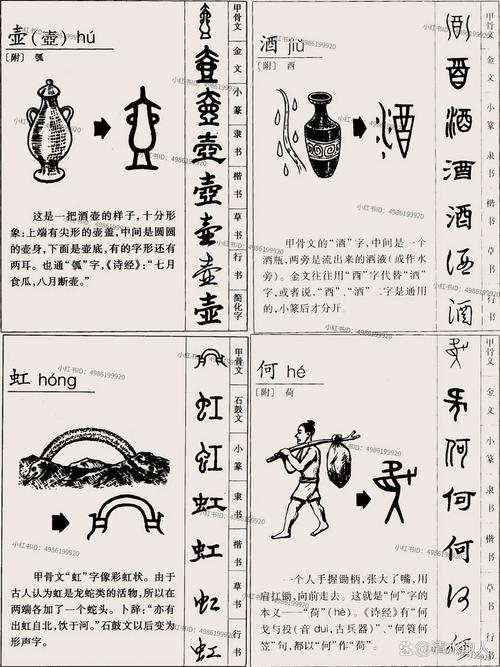 壶(壺) hú
〔附〕 瓠
这是一把酒壶的样子,十分形
象:上端有尖形的壶盖,中间是圆圆
的壶身,下面是壶底,有的字形还有
两耳。也通“瓠”字,《诗经》:“七月
食瓜,八月断壶。”
甲骨文
金文
小篆
隶书
楷书
草书
行书
简化字
酒 jiǔ
〔附〕 酉
甲骨文的“酒”字,中间是一个
酒瓶,两旁是流出来的酒液(或作水
旁)。金文往往用“酉”字代替“酒”
字,或者说,“酉”、“酒”二字是通用
的,小篆后才分开。
甲骨文
金文
小篆
隶书
楷书
草书
行书
虹 hóng
甲骨文“虹”字像彩虹状。由于
古人认为虹是龙蛇类的活物,所以在
两端各加了一个蛇头。卜辞:“亦有
出虹自北,饮于河。”石鼓文以后变为
形声字。
甲骨文
石鼓文
小篆
隶书
楷书
草书
行书
何 hé
〔附〕 荷
一个人手握锄柄,张大了嘴,用
肩扛锄,向前走去。这就是“何”字的
本义——“荷”(hè)。《诗经》有“何
戈与祋(音 duì,古兵器)”、“何蓑何
笠”句,都以“何”作“荷”。
甲骨文
金文
小篆
隶书
楷书
草书
行书
小红书ID: 4986199920